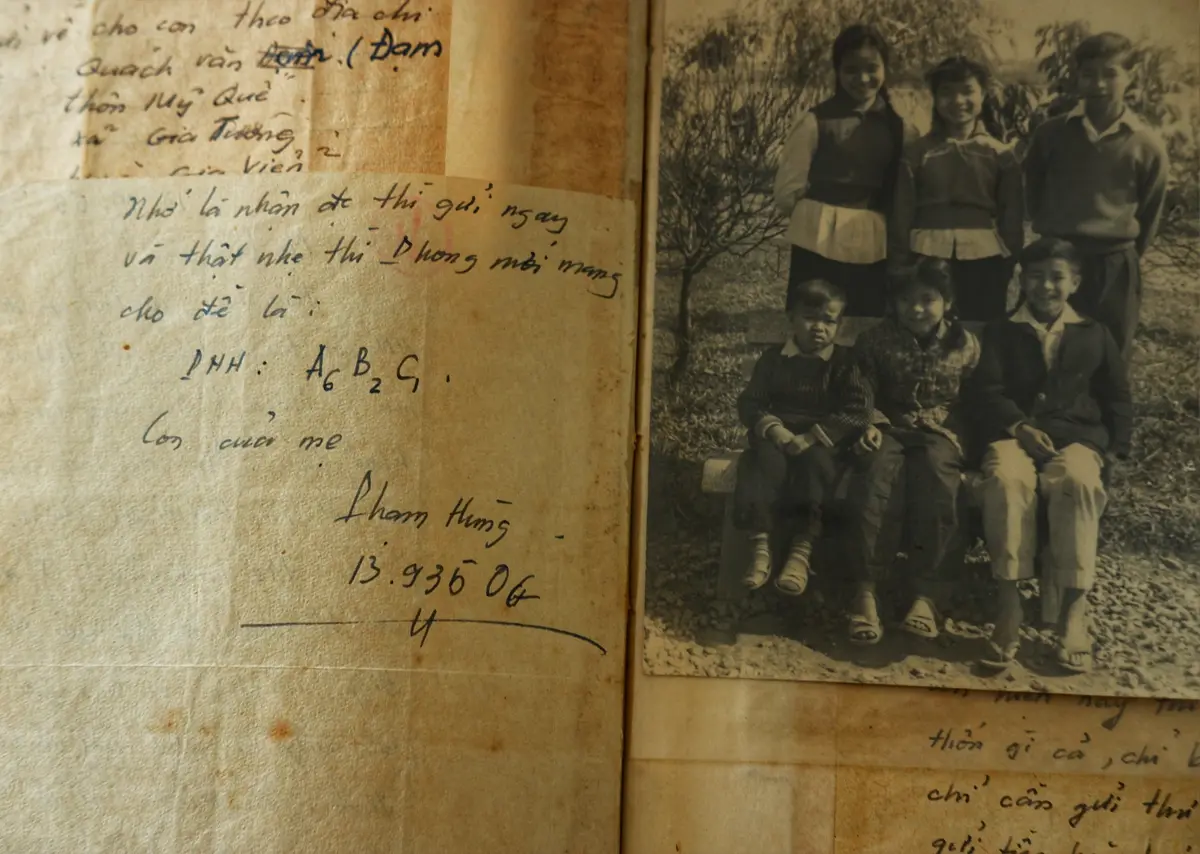 về cho con theo địa chỉ
Quách văn (Đạm
thôn Mỹ Quế
xã Gia Tường
Gia Viễn
Nhớ là nhận đc thì gửi ngay
và thật nhẹ thì Phong mới mang
cho đề là:
PHH: A6 B2 C1.
Con của mẹ
Pham Hùng
13.935 04
4
này
thốn gì cả, chỉ
chỉ cần gửi thư
gửi